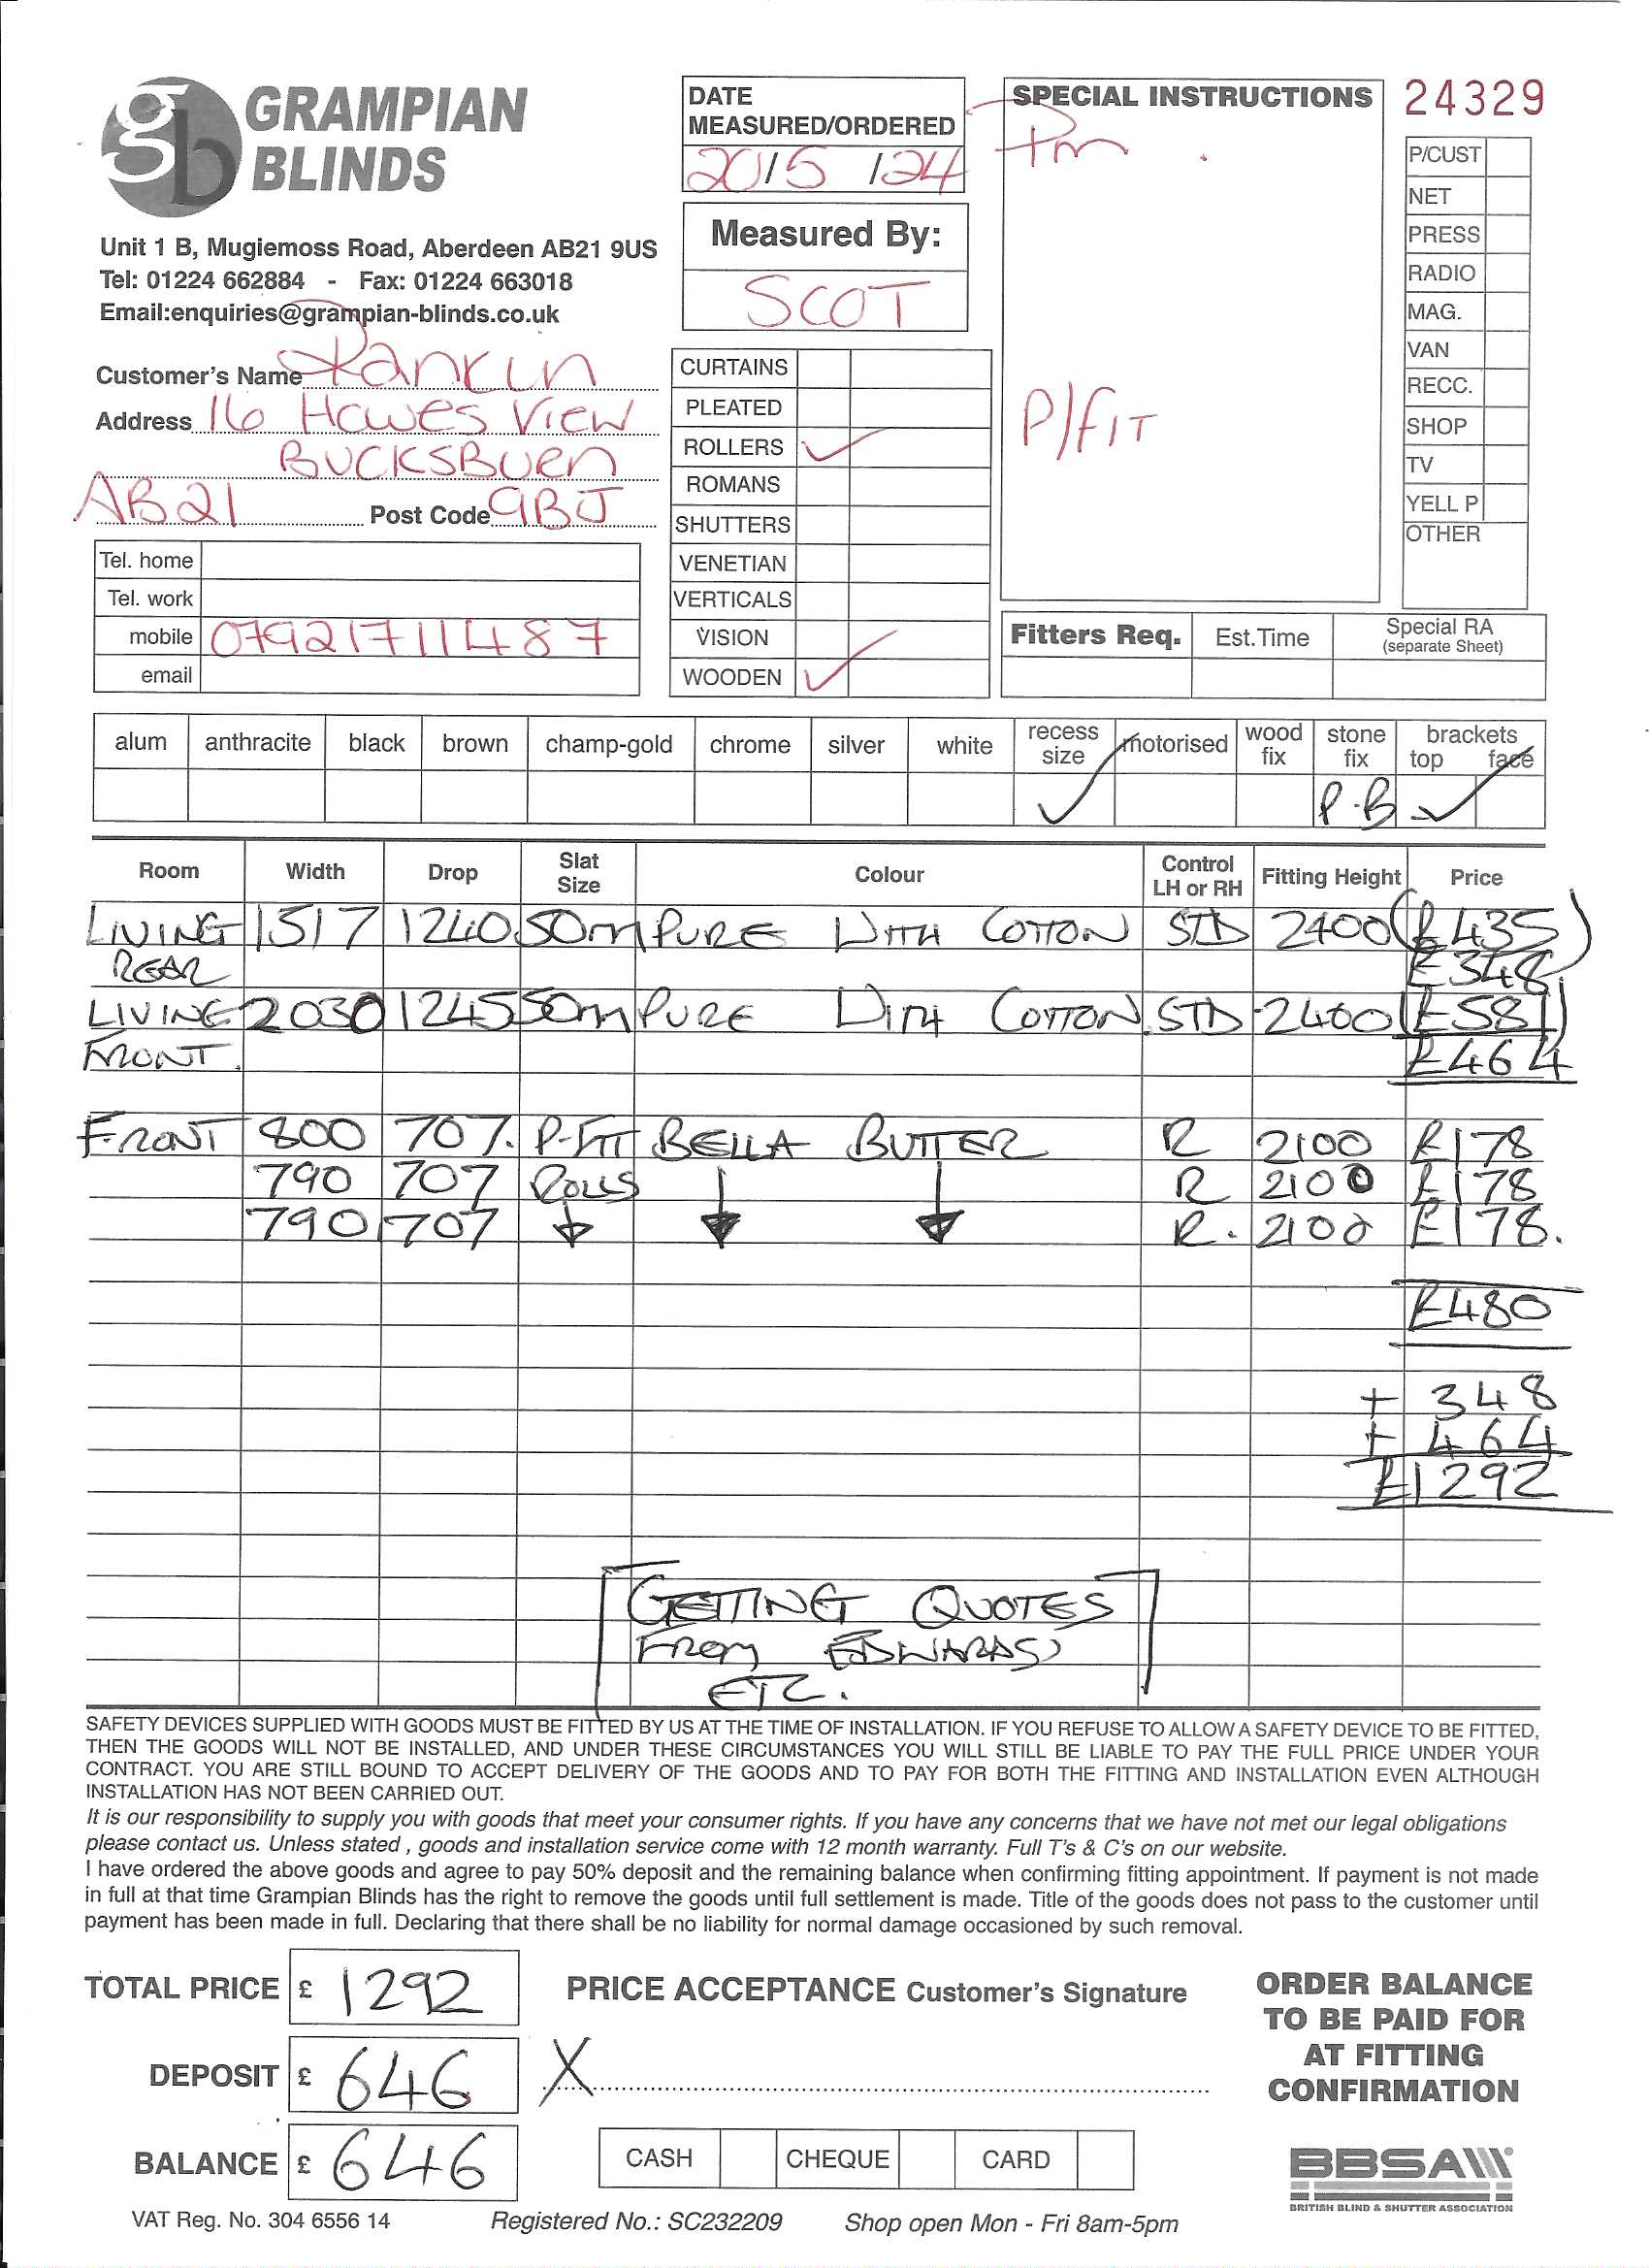 gb GRAMPIAN BLINDS
Unit 1 B, Mugiemoss Road, Aberdeen AB21 9US
Tel: 01224 662884 - Fax: 01224 663018
Email:enquiries@grampian-blinds.co.uk
DATE MEASURED/ORDERED
20/5/24
Measured By:
SCOT
SPECIAL INSTRUCTIONS
Pm
P/FIT
24329
P/CUST
NET
PRESS
RADIO
MAG.
VAN
RECC.
SHOP
TV
YELL P
OTHER
Customer's Name Rankin
Address 16 Howes View
BUCKSBURN
AB21 Post Code 9BJ
Tel. home
Tel. work
mobile 07921711487
email
CURTAINS
PLEATED
ROLLERS ✓
ROMANS
SHUTTERS
VENETIAN
VERTICALS
VISION
WOODEN ✓
Fitters Req. Est.Time Special RA (separate Sheet)
alum anthracite black brown champ-gold chrome silver white recess size motorised wood fix stone fix brackets top face
✓ P.B ✓
Room Width Drop Slat Size Colour Control LH or RH Fitting Height Price
LIVING 1517 1240 50m PURE WITH COTTON STD 2400 (£435)
REAR £348
LIVING 2030 1245 50m PURE WITH COTTON STD 2400 (£581)
FRONT. £464
FRONT 800 707. P-FIT BELLA BUTTER R 2100 £178
790 707 ROLLS R 2100 £178
790 707 R. 2100 £178.
£480
+ 348
+ 464
£1292
GETTING QUOTES
FROM EDWARDS
ETC.
SAFETY DEVICES SUPPLIED WITH GOODS MUST BE FITTED BY US AT THE TIME OF INSTALLATION. IF YOU REFUSE TO ALLOW A SAFETY DEVICE TO BE FITTED,
THEN THE GOODS WILL NOT BE INSTALLED, AND UNDER THESE CIRCUMSTANCES YOU WILL STILL BE LIABLE TO PAY THE FULL PRICE UNDER YOUR
CONTRACT. YOU ARE STILL BOUND TO ACCEPT DELIVERY OF THE GOODS AND TO PAY FOR BOTH THE FITTING AND INSTALLATION EVEN ALTHOUGH
INSTALLATION HAS NOT BEEN CARRIED OUT.
It is our responsibility to supply you with goods that meet your consumer rights. If you have any concerns that we have not met our legal obligations
please contact us. Unless stated , goods and installation service come with 12 month warranty. Full T's & C's on our website.
I have ordered the above goods and agree to pay 50% deposit and the remaining balance when confirming fitting appointment. If payment is not made
in full at that time Grampian Blinds has the right to remove the goods until full settlement is made. Title of the goods does not pass to the customer until
payment has been made in full. Declaring that there shall be no liability for normal damage occasioned by such removal.
TOTAL PRICE £ 1292
DEPOSIT £ 646
BALANCE £ 646
PRICE ACCEPTANCE Customer's Signature
X
CASH CHEQUE CARD
ORDER BALANCE
TO BE PAID FOR
AT FITTING
CONFIRMATION
BBSA
BRITISH BLIND & SHUTTER ASSOCIATION
VAT Reg. No. 304 6556 14 Registered No.: SC232209 Shop open Mon - Fri 8am-5pm